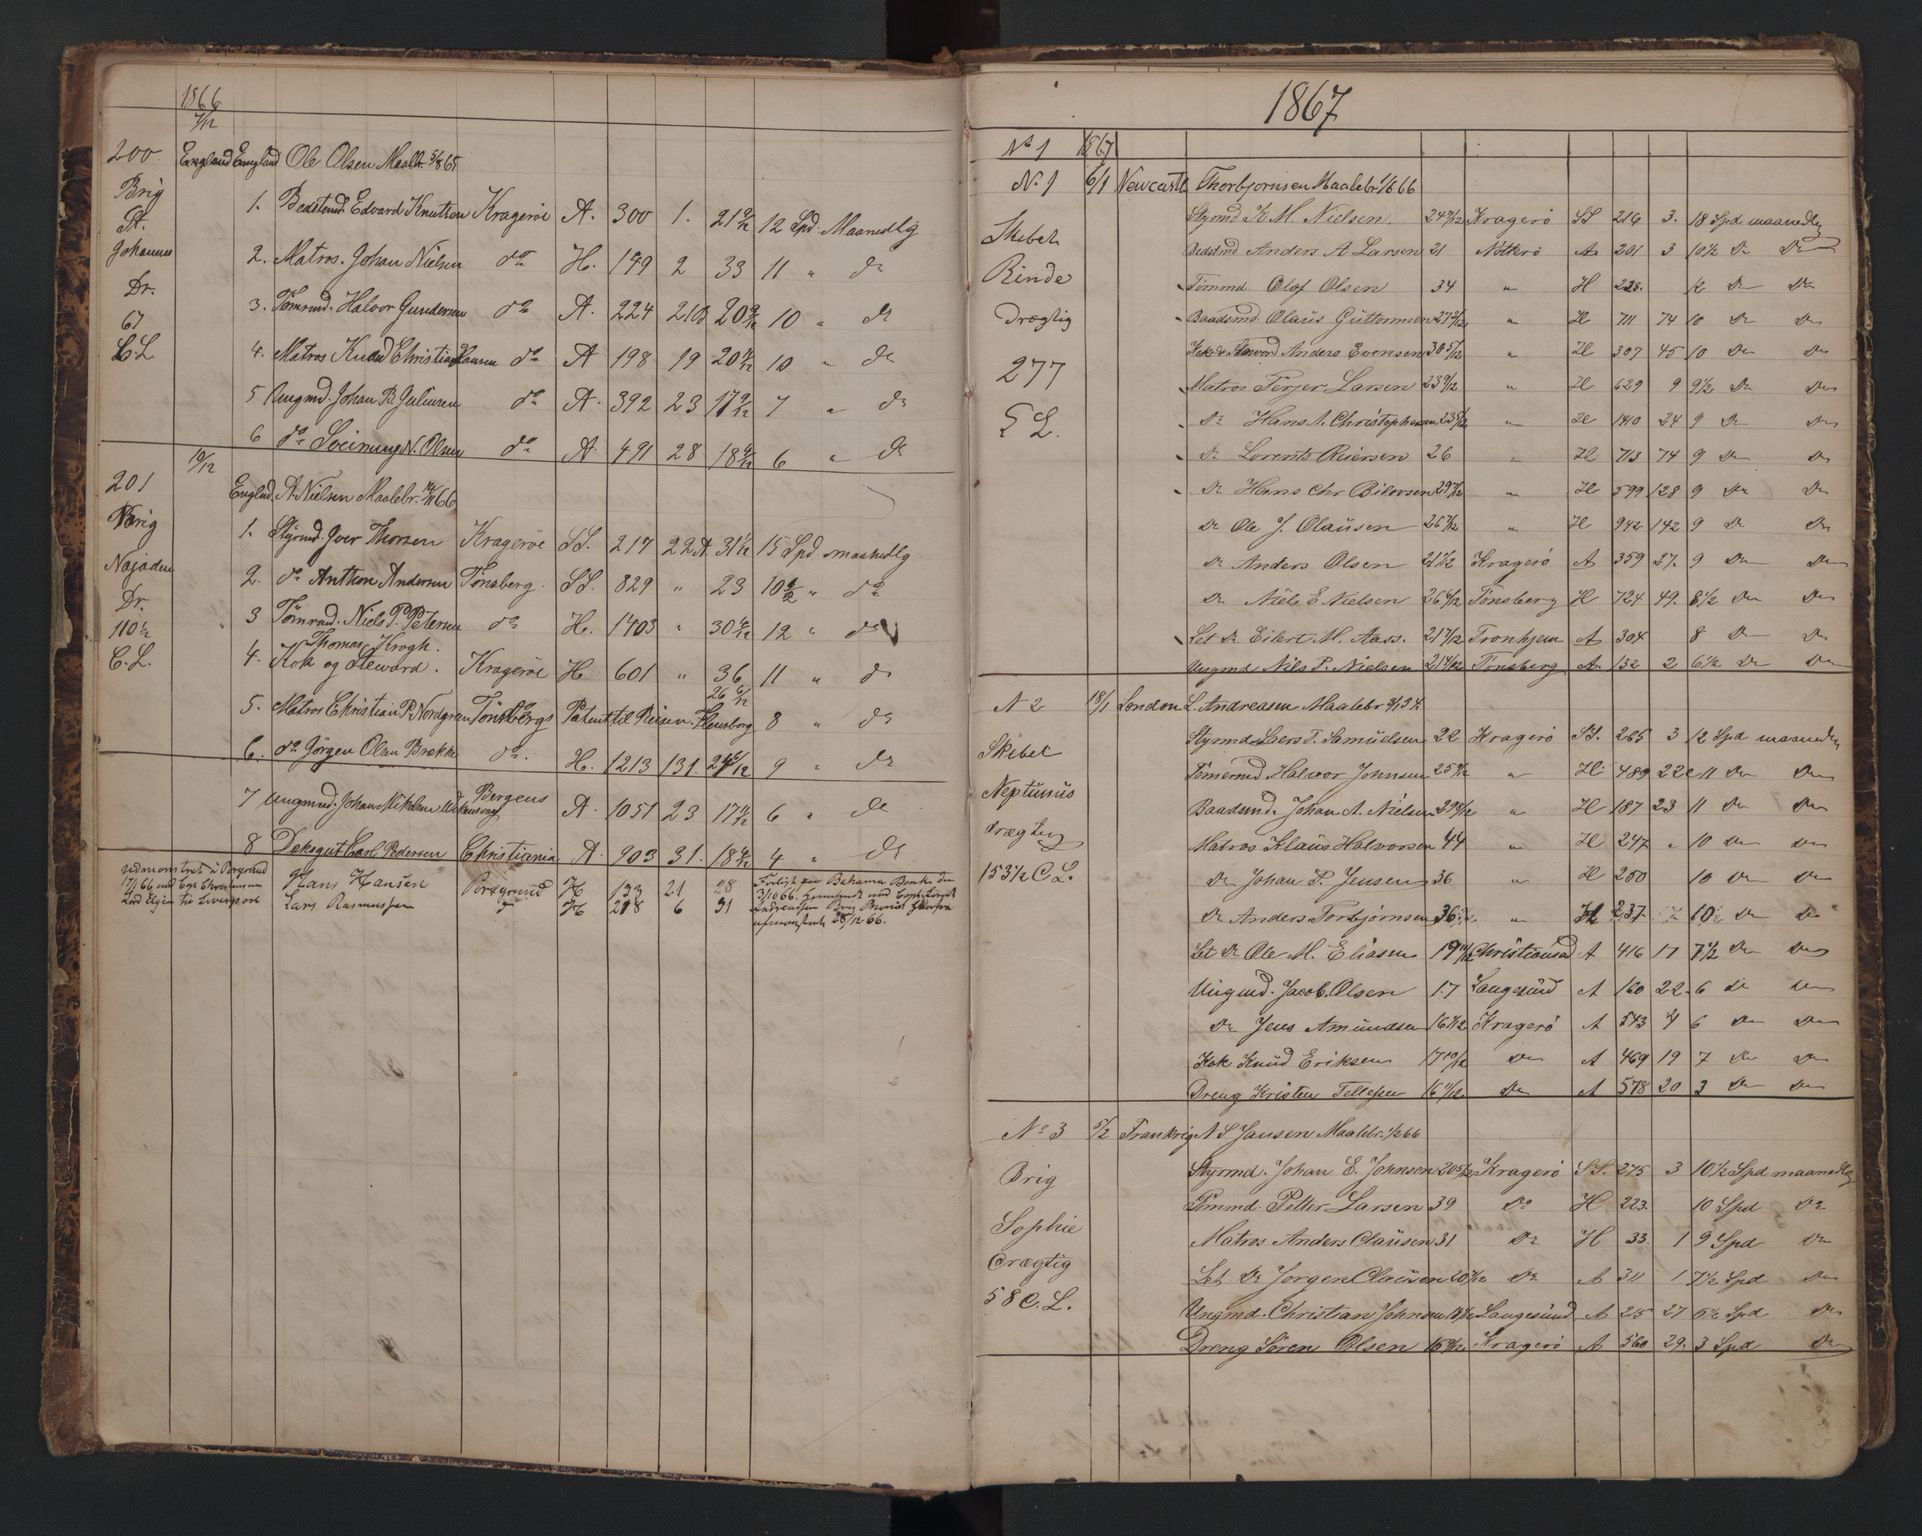 1866
7/12
200 England England Ole Olsen Maalbr 5/4 65
Brig St. Johannes Dr. 67 C L
1. Bedstmd. Edvard Knutsen Kragerøe A. 300 1. 21 9/12 12 Spd. Maanedlg
2. Matros. Johan Nielsen do H. 149 2 33 11 " do
3. Tømrmd. Halvor Gundersen do A. 224 21B 20 9/12 10 " do
4. Matros Knud Christian Hansen do A 198 19 20 4/12 10 " do
5 Ungmd. Johan B. Juliusen do A. 392 23 17 9/12 7 " do
6 do Sveinung N. Olsen do A. 491 28 18 4/12 6 " do
201 10/12 Englnd. A. Nielsen Maalebr. 14/11 66
Brig Najaden Dr. 110 1/2 C. L.
1. Styrmd. Iver Thorsen Kragerøe SS. 217 22A. 31 1/12 15 Spd. maanedlg.
2. do Anthon Andersen Tønsberg. SS. 829 " 23 10 1/2 " do
3 Tømrmd. Niels P. Petersen do H. 1403 " 30 4/12 12 " do
Thomas Krogh.
4. Kok og Steward. Kragerøe H. 601 " 36 11 " do
26 6/12
5. Matros Christian P. Nordgren Tønsbergs Patent til Reisen Flensborg 8 " do
6. do Jörgen Olsen Brekke do. H. 1213 131. 24 9/12 9 " do
7 Ungmd. Johan Mikkelsen Bergens A. 1051 23 17 4/12 6 " do
8 Deksgut Carl Pedersen Christiania A. 903 31. 18 4/12 4 " do
udmønstret i Porsgrund Hans Hansen Porsgrund H 133 21 28 Forlist paa Bahama Banke den
17/1 66 Lars Rasmussen " H. 218 6 31 3/10 66. hjemsendt med
til Liverpool afmønstrede 28/12 66.
1867
No 1 1867
No 1 6/1 Newcastle Thorbjornsen Maalebr 1/6 66
Skibet Rinde drægtig 277 C L.
Styrmd K. M. Nielsen. 24 7/12 Kragerö SS 216 3. 18 Spd maanedlg
Bedstmd Anders A Larsen 21 Nötterö A 201 3 10 1/2 Do Do
Tømmd. Olof Olsen 34 " H 228. 12 Do Do
Baadsmd Olaus Guttormsen 27 9/12 " H 711 74 10 Do Do
Kok & Steword Anders Evensen 30 5/12 " H 307 45 10 Do Do
Matros Terjer Larsen 23 9/12 " H 629 9 9 1/2 Do Do
Do Hans A. Christophersen 23 5/12 " H 1410 24 9 Do Do
Do Lorents Reiersen 26 " H 713 74 9 Do Do
Do Hans Chr 29 7/12 " H 599 128 9 Do Do
Do Ole J. Olausen 26 7/12 " H 942 142 9 Do Do
Do Anders Olsen 21 1/12 Kragerö A 359 27. 9 Do Do
Do Niels E. Nielsen 26 4/12 Tönsberg H 724 49. 8 1/2 Do Do
Let Do Eilert M. Aass. 21 7/12 Tronhjem A 304 8 Do Do
Ungmd Nils P. Nielsen 21 4/12 Tönsberg A 132 2 6 1/2 Do Do
N 2 18/1 London L. Andreasen Maalebr
Skibet Neptunus drægtig 153 1/2 C. L.
Styrmd Laers T. Samuelsen 22 Kragerö SS. 265 3 12 Spd maanedlg
Tömermd Halvor Johnsen 25 9/12 " H 489 22c 11 Do Do
Baadsmd. Johan A. Nielsen 29 8/12 " H 187 23 11 Do Do
Matros Klaus Halvorsen 44 " H 247 " 10 Do Do
Do Johan P. Jensen 36 " H 250 10 Do Do
Do Anders Torbjørnsen 36 " H 237 10 1/2 Do Do
Let Do Ole M. Eliasen 19 11/12 Christiansad A 416 17 7 1/2 Do Do
Ungmd. Jacob. Olsen 17 Langesund A 160 22. 6 Do Do
Do Jens Amundsen 16 11/12 Kragerö A 543 4 6 Do Do
Kok Knud Eriksen 17 10/12 Do A 469 19 7 Do Do
Dreng Kristen Tellefsen 16 11/12 Do A 578 20 3 Do Do
No 3 5/2 Frankrig A S Jansen Maalebr. 1/2 66
Brig Sophie drægtig 58 C. L.
Styrmd. Johan E. Johnsen 20 5/12 Kragerö SS. 275 3 10 1/2 Spd maanedlg
Tømmd. Petter Larsen 39 Do H 223. 10 Spd Do
Matros Anders Clausen 31 Do H 33. 1 9 Spd Do
Let Do Jørgen Clausen 20 7/12 Do A 311 1 7 1/2 Spd Do
Ungmd. Christian Johnsen 18 9/12 Langesund A 215 27 6 1/2 Spd Do
Dreng Sören Olsen 16 9/12 Kragerö A 560 29. 3 Spd Do